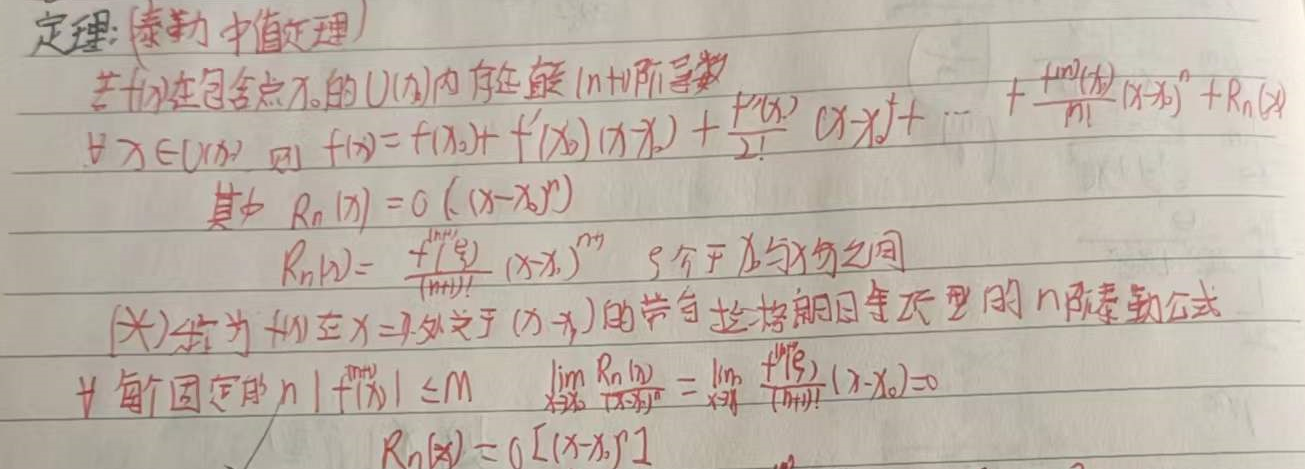 定理:(泰勒中值定理)
若f(x)在包含点x₀的U(x₀)内存在直至(n+1)阶导数
∀x∈U(x₀) 则 f(x)=f(x₀)+f'(x₀)(x-x₀)+f''(x₀)/2!(x-x₀)²+…+f⁽ⁿ⁾(x₀)/n!(x-x₀)ⁿ+Rₙ(x)
其中 Rₙ(x)=o((x-x₀)ⁿ)
Rₙ(x)=f⁽ⁿ⁺¹⁾(ξ)/(n+1)!(x-x₀)ⁿ⁺¹ ξ介于x₀与x之间
(*)称为f(x)在x=x₀处关于(x-x₀)的带有拉格朗日余项型的n阶泰勒公式
∀每个固定的n |f⁽ⁿ⁺¹⁾(x)|≤M lim x→x₀ Rₙ(x)/(x-x₀)ⁿ=lim x→x₀ f⁽ⁿ⁺¹⁾(ξ)/(n+1)!(x-x₀)=0
Rₙ(x)=o[(x-x₀)ⁿ]